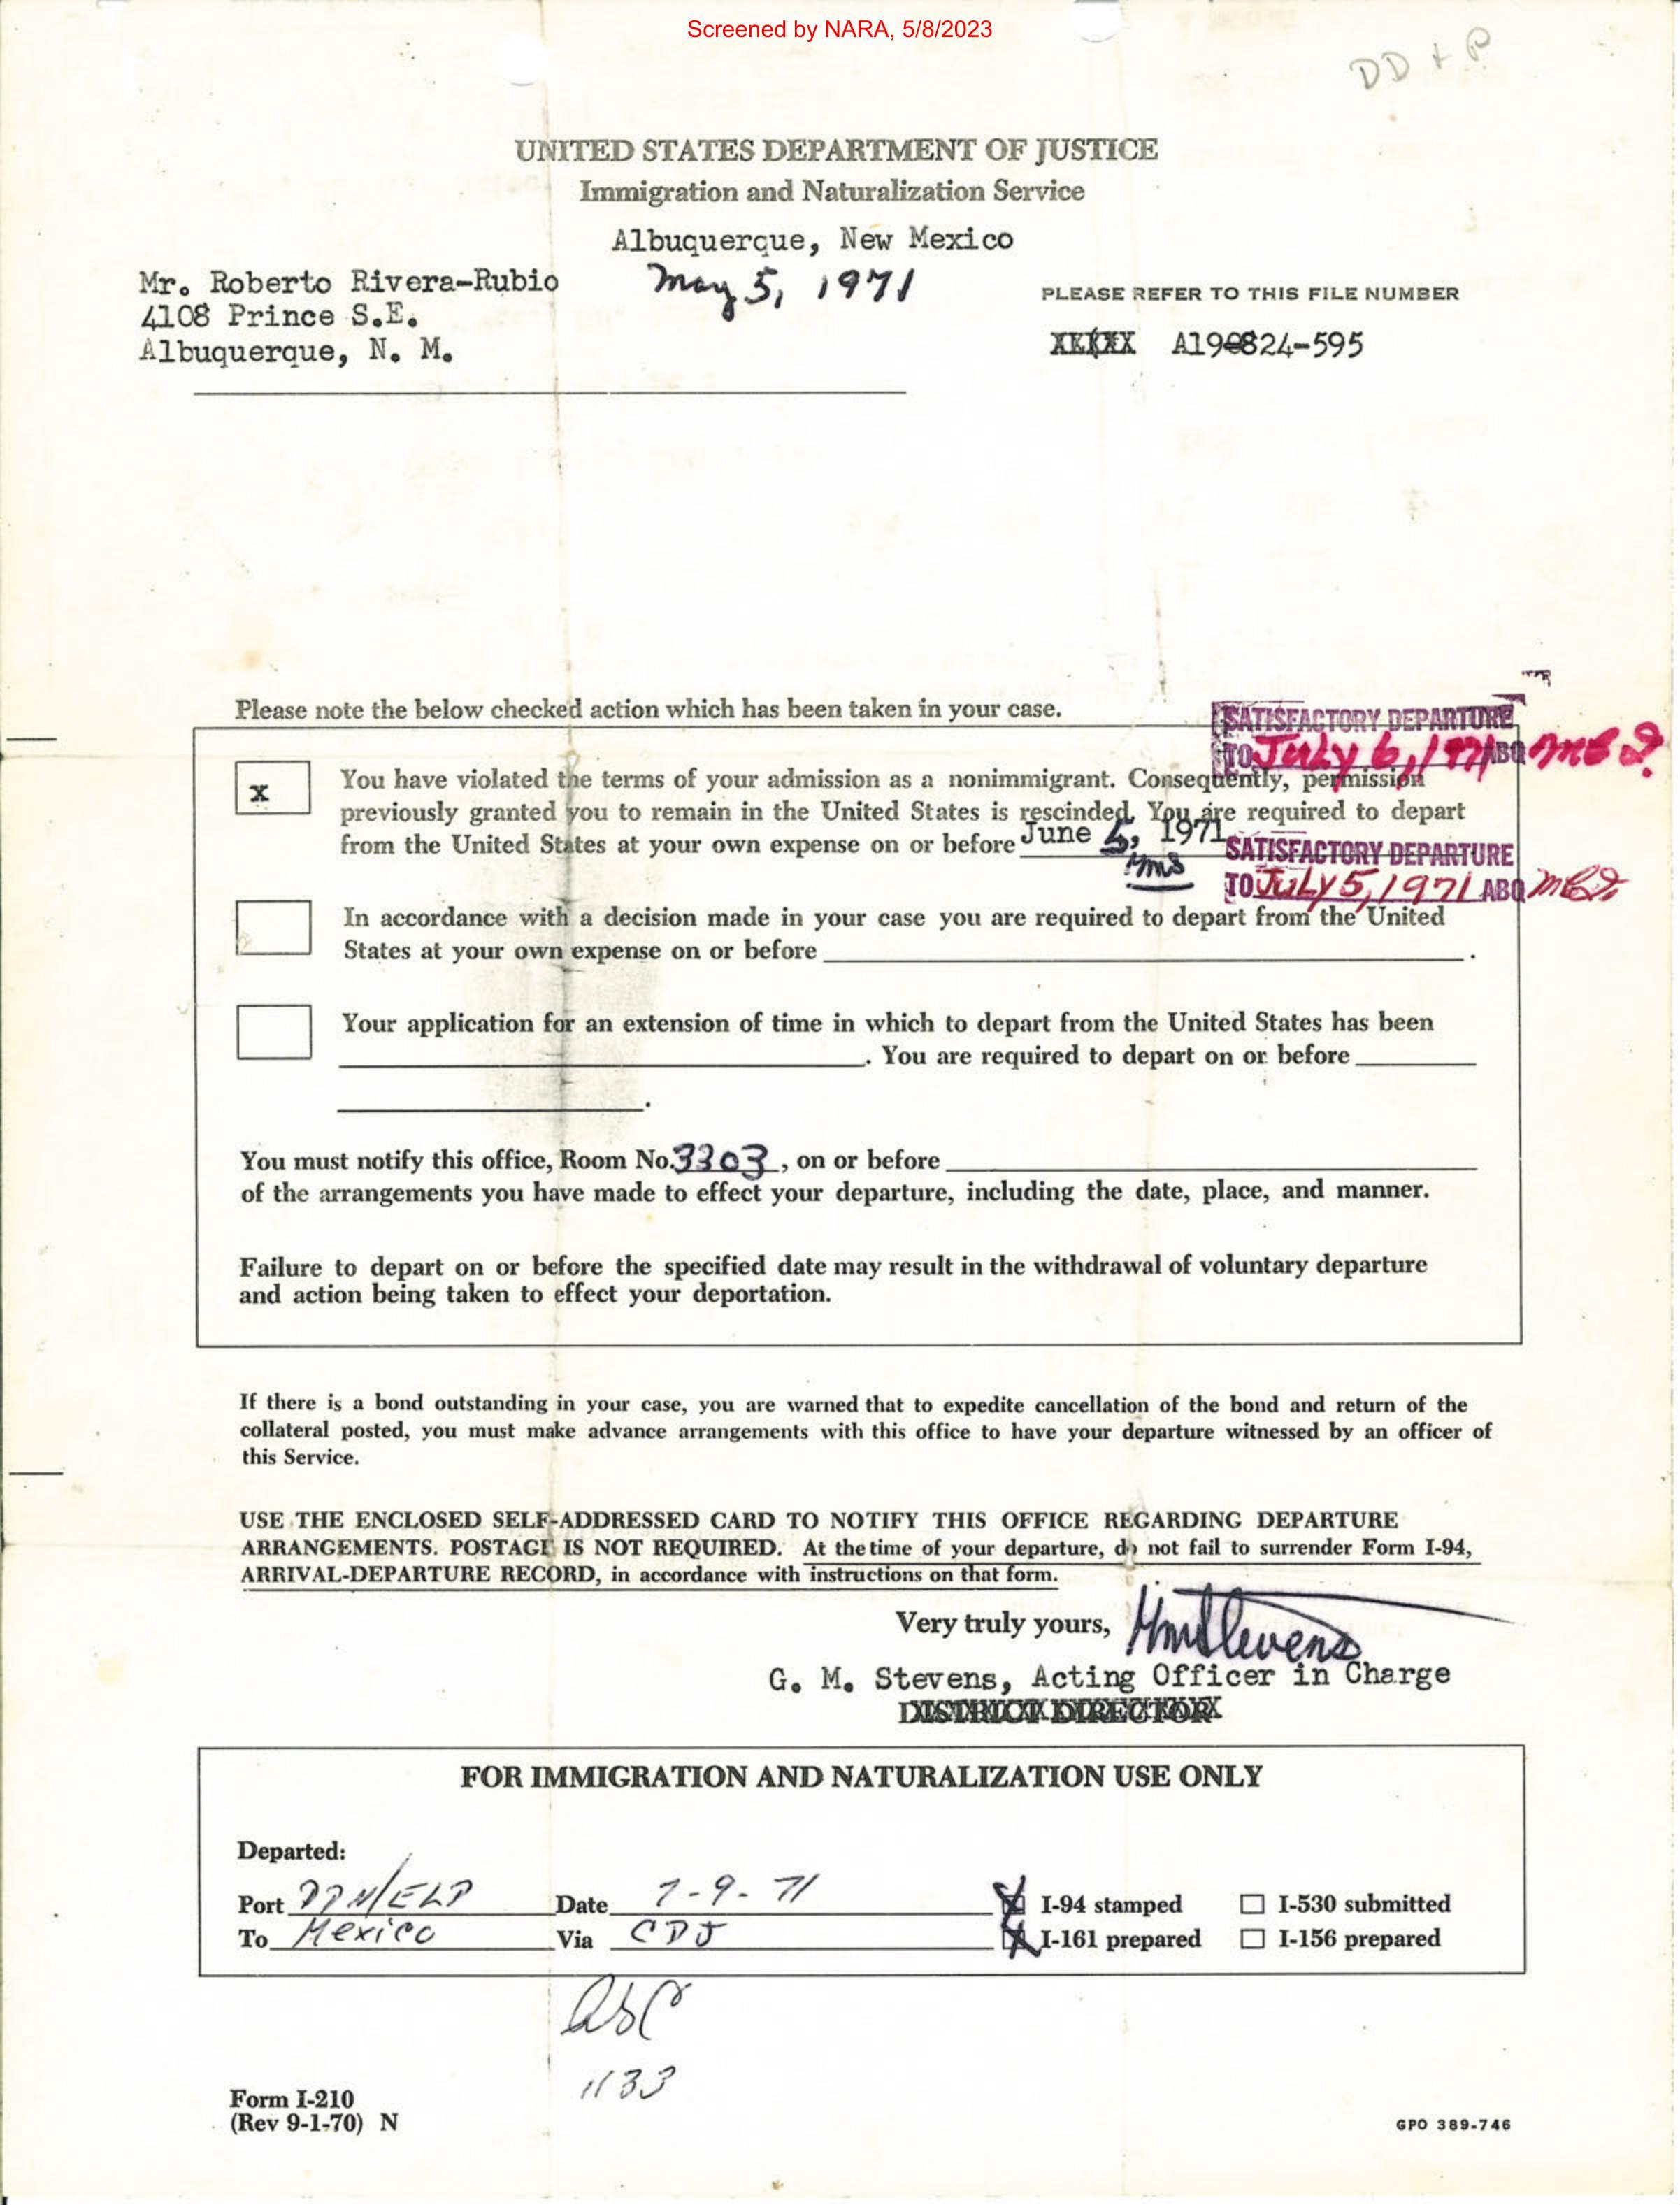 Screened by NARA, 5/8/2023
DD + P
UNITED STATES DEPARTMENT OF JUSTICE
Immigration and Naturalization Service
Albuquerque, New Mexico
May 5, 1971
Mr. Roberto Rivera-Rubio
4108 Prince S.E.
Albuquerque, N. M.
PLEASE REFER TO THIS FILE NUMBER
A19-824-595
Please note the below checked action which has been taken in your case.
SATISFACTORY DEPARTURE
TO July 6, 1971 ABQ
x
You have violated the terms of your admission as a nonimmigrant. Consequently, permission
previously granted you to remain in the United States is rescinded. You are required to depart
from the United States at your own expense on or before June 5, 1971
SATISFACTORY DEPARTURE
TO July 5, 1971 ABQ
In accordance with a decision made in your case you are required to depart from the United
States at your own expense on or before .
Your application for an extension of time in which to depart from the United States has been
. You are required to depart on or before
.
You must notify this office, Room No. 3303, on or before
of the arrangements you have made to effect your departure, including the date, place, and manner.
Failure to depart on or before the specified date may result in the withdrawal of voluntary departure
and action being taken to effect your deportation.
If there is a bond outstanding in your case, you are warned that to expedite cancellation of the bond and return of the
collateral posted, you must make advance arrangements with this office to have your departure witnessed by an officer of
this Service.
USE THE ENCLOSED SELF-ADDRESSED CARD TO NOTIFY THIS OFFICE REGARDING DEPARTURE
ARRANGEMENTS. POSTAGE IS NOT REQUIRED. At the time of your departure, do not fail to surrender Form I-94,
ARRIVAL-DEPARTURE RECORD, in accordance with instructions on that form.
Very truly yours, GMStevens
G. M. Stevens, Acting Officer in Charge
DISTRICT DIRECTOR
FOR IMMIGRATION AND NATURALIZATION USE ONLY
Departed:
Port /ELP Date 7-9-71 I-94 stamped I-530 submitted
To Mexico Via CDJ I-161 prepared I-156 prepared
1133
Form I-210
(Rev 9-1-70) N
GPO 389-746